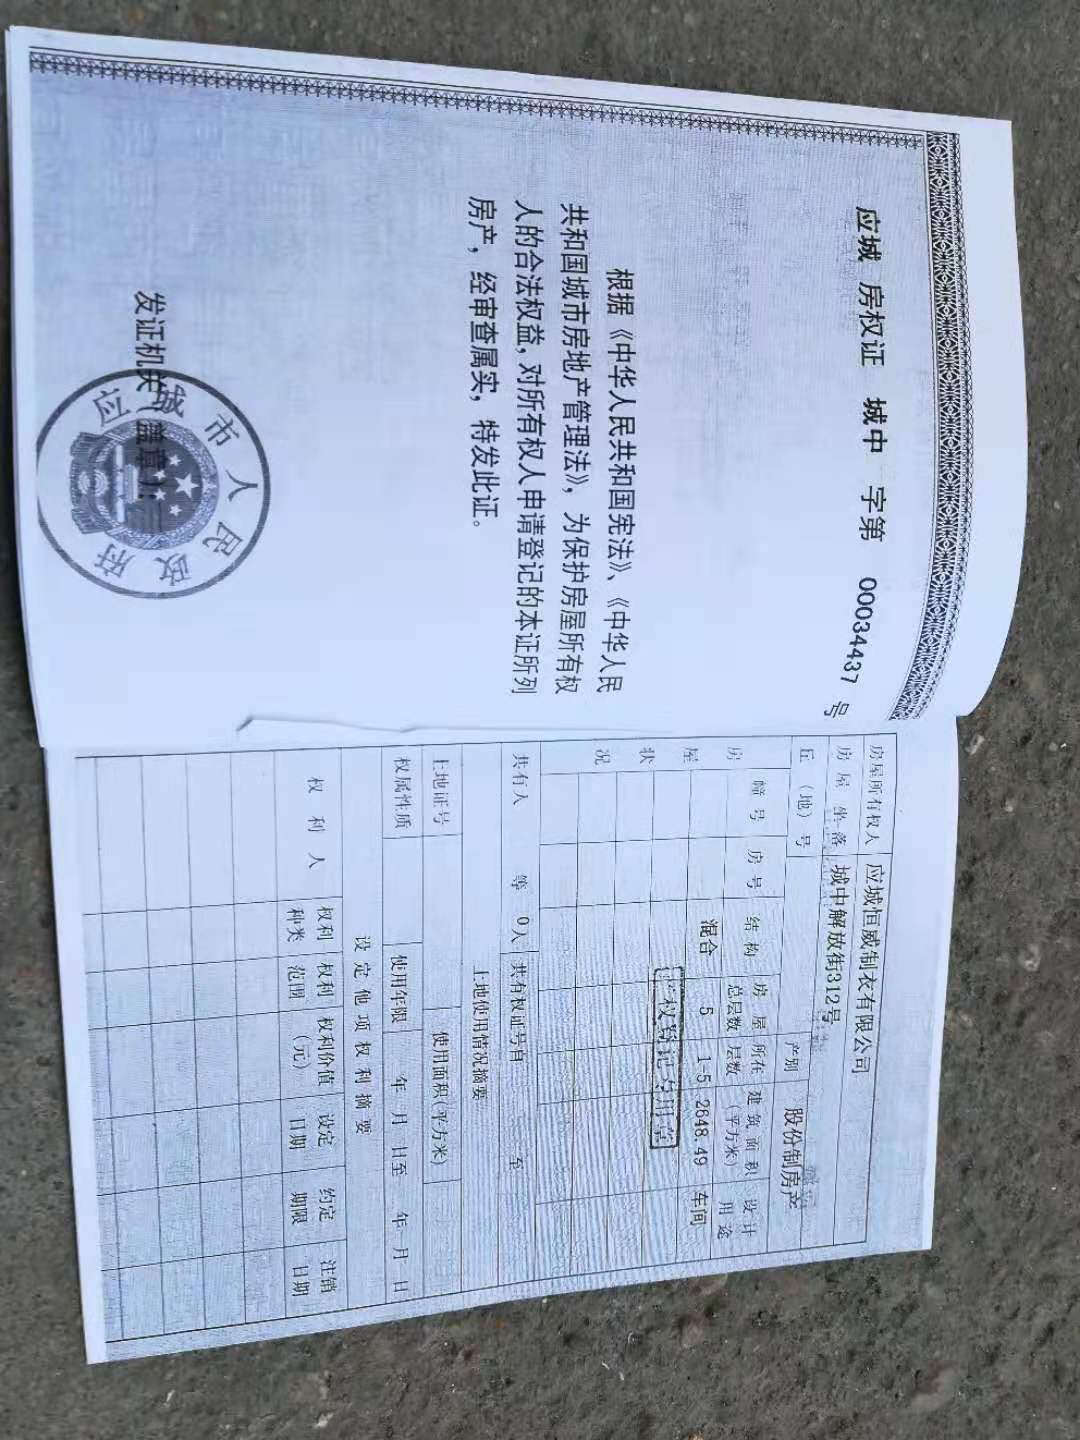 应城 房权证 城中 字第 00034437 号
根据《中华人民共和国宪法》、《中华人民
共和国城市房地产管理法》，为保护房屋所有权
人的合法权益，对所有权人申请登记的本证所列
房产，经审查属实，特发此证。
发证机关（盖章）：
应城市人民政府
房屋所有权人 应城恒威制衣有限公司
房屋坐落 城中解放街312号
丘（地）号 产别 股份制房产
房屋状况
幢号 房号 结构 房屋总层数 所在层数 建筑面积（平方米） 设计用途
混合 5 1-5 2648.49 车间
产权登记专用章
共有人 等 0人 共有权证号自 至
土地使用情况摘要
土地证号 使用面积（平方米）
权属性质 使用年限 年 月 日至 年 月 日
设定他项权利摘要
权利人 权利种类 权利范围 权利价值（元） 设定日期 约定期限 注销日期